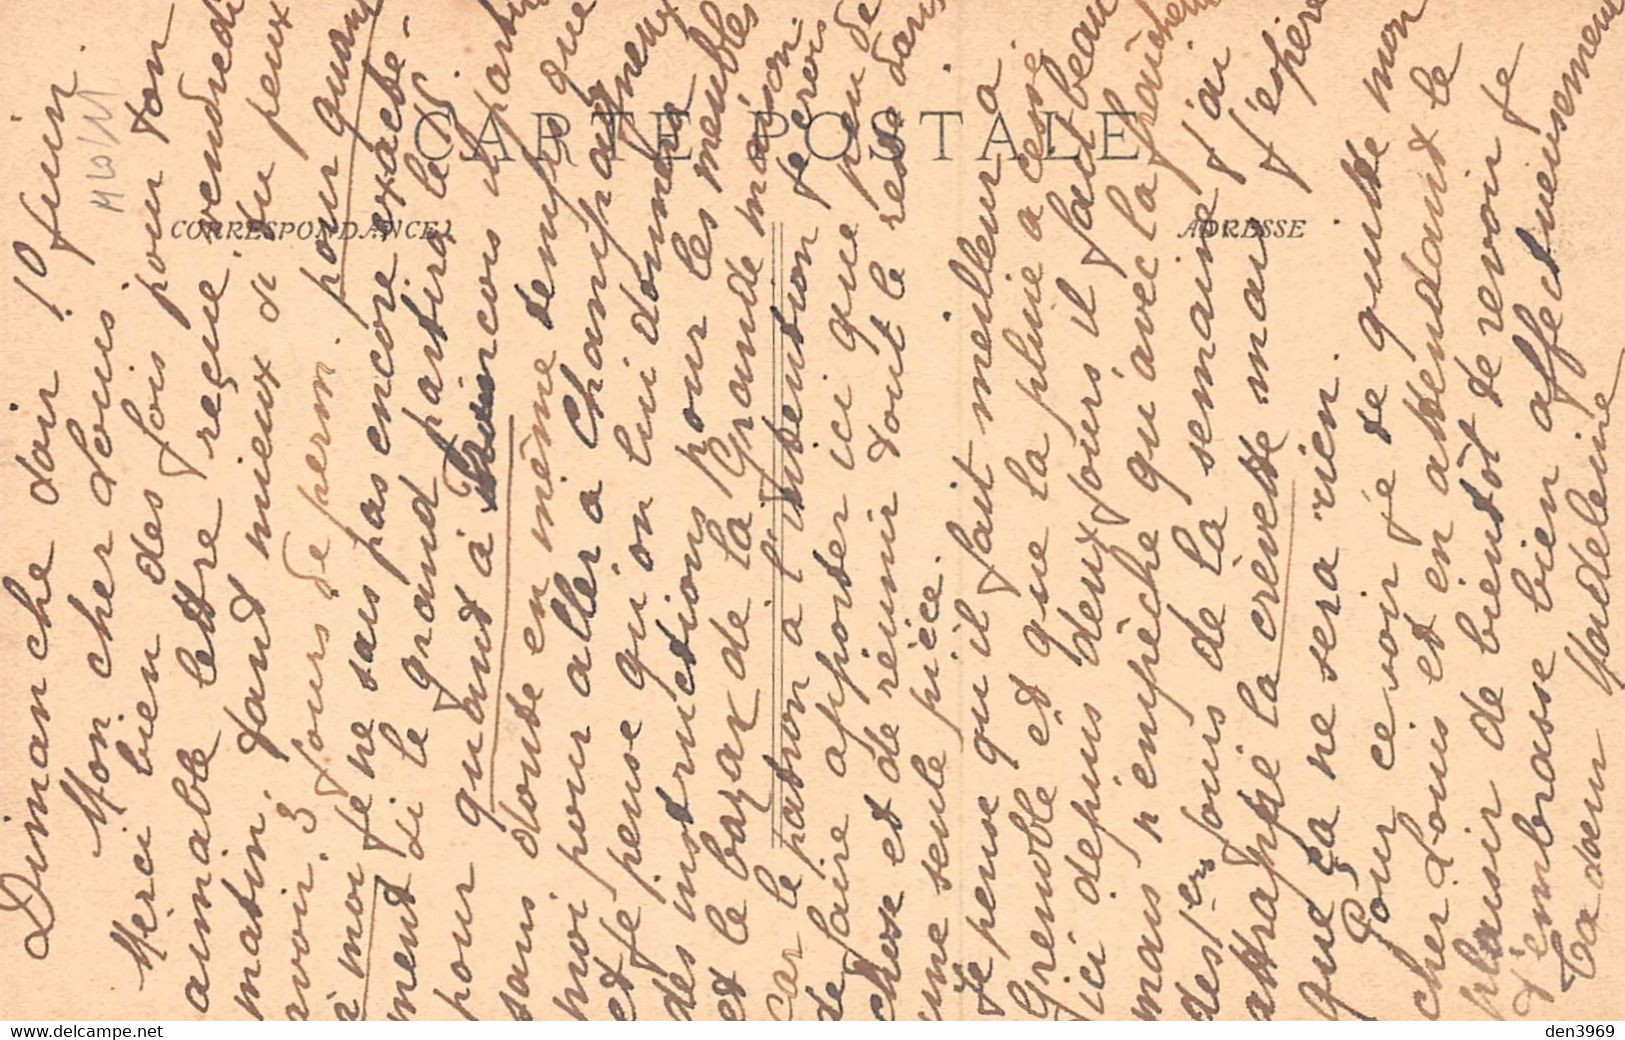 CARTE POSTALE
CORRESPONDANCE
ADRESSE
Dimanche soir 10 Juin.
Mon cher Louis.
Merci bien des fois pour ton
aimable lettre reçue vendredi
matin. Tant mieux si tu peux
avoir 3 jours de perm. pour quand
à moi je ne sais pas encore exacte-
ment si le grand partira le 15
pour quant à Tourcoin il partira
sans doute en même temps que
moi pour aller à Champagneux
et je pense qu'on lui donnera
des instructions pour les meubles
et le bazar de la Grande maison.
car le patron a l'intention je crois
de faire apporter ici que peu de
chose et de réunir tout le reste dans
une seule pièce.
Je pense qu'il fait meilleur à
Grenoble et que la pluie a cessé
ici depuis deux jours il fait beau
mais n'empêche qu'avec la fraîcheur
des 1ers jours de la semaine j'ai
attrappé la crevette mais j'espère
que ça ne sera rien.
Pour ce soir je te quitte mon
cher Louis et en attendant le
plaisir de bientôt te revoir je
t'embrasse bien affectueusement
Ta sœur Madeleine
den3969